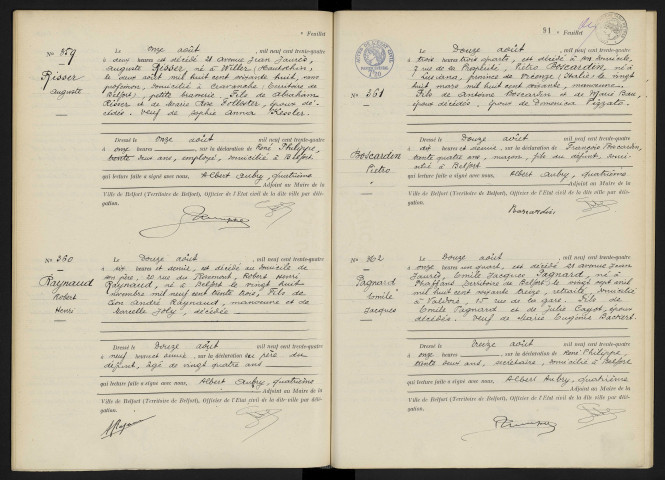 Feuillet
No 359
Risser
Auguste
Le onze août, mil neuf cent trente-quatre
à deux heures est décédé 21 avenue Jean Jaurès,
Auguste Risser, né à Willer (Haut-Rhin),
le deux août mil huit cent soixante huit, sans
profession, domicilié à Cravanche (Territoire de
Belfort), Fils de Abraham
Risser et de Marie Rose, époux dé-
cédés. Veuf de Sophie Anna Kessler.
Dressé le onze août, mil neuf cent trente-quatre
à onze heures, sur la déclaration de René Philippe,
trente deux ans, employé, domicilié à Belfort
qui lecture faite a signé avec nous, Albert Aubry, quatrième
Adjoint au Maire de la
Ville de Belfort (Territoire de Belfort), Officier de l'Etat civil de la dite ville par délé-
gation.
No 360
Raynaud
Robert
Henri
Le Douze août, mil neuf cent trente-quatre
à six heures et demie, est décédé au domicile de
son père, 20 rue du, Robert Henri
Raynaud, né à Belfort le vingt huit
novembre mil neuf cent trente trois, Fils de
Léon André Raynaud, manoeuvre et de
Marcelle Joly, décédée
Dressé le Douze août, mil neuf cent trente-quatre
à neuf heures et demie, sur la déclaration du père du
défunt, âgé de vingt quatre ans
qui lecture faite a signé avec nous, Albert Aubry, quatrième
Adjoint au Maire de la
Ville de Belfort (Territoire de Belfort), Officier de l'Etat civil de la dite ville par délé-
gation.
91 Feuillet
No 361
Boscardin
Pietro
Le Douze août, mil neuf cent trente-quatre
à trois heures trois quarts, est décédé à son domicile,
rue de la, Pietro Boscardin, né à
Lusiana, province de Vicenze (Italie) le vingt
huit mars mil huit cent soixante, manoeuvre.
Fils de Antoine Boscardin et de Marie,
époux décédés. Époux de Domenica Pizzato.
Dressé le Douze août, mil neuf cent trente-quatre
à dix heures et demie, sur la déclaration de François Boscardin,
trente quatre ans, maçon, fils du défunt, domi-
cilié à Belfort
qui lecture faite a signé avec nous, Albert Aubry, quatrième
Adjoint au Maire de la
Ville de Belfort (Territoire de Belfort), Officier de l'Etat civil de la dite ville par délé-
gation.
Boscardin
No 362
Pagnard
Emile
Jacques
Le Douze août, mil neuf cent trente-quatre
à onze heures un quart, est décédé 21 avenue Jean
Jaurès, Emile Jacques Pagnard, né à
Phaffans (Territoire de Belfort) le vingt sept août
mil huit cent soixante treize, retraité, domicilié
à Valdoie, 15 rue de la gare. Fils de
Emile Pagnard et de Julie Cagot, époux
décédés. Veuf de Marie Eugénie Backert.
Dressé le treize août, mil neuf cent trente-quatre
à onze heures, sur la déclaration de René Philippe,
trente deux ans, secrétaire, domicilié à Belfort
qui lecture faite a signé avec nous, Albert Aubry, quatrième
Adjoint au Maire de la
Ville de Belfort (Territoire de Belfort), Officier de l'Etat civil de la dite ville par délé-
gation.